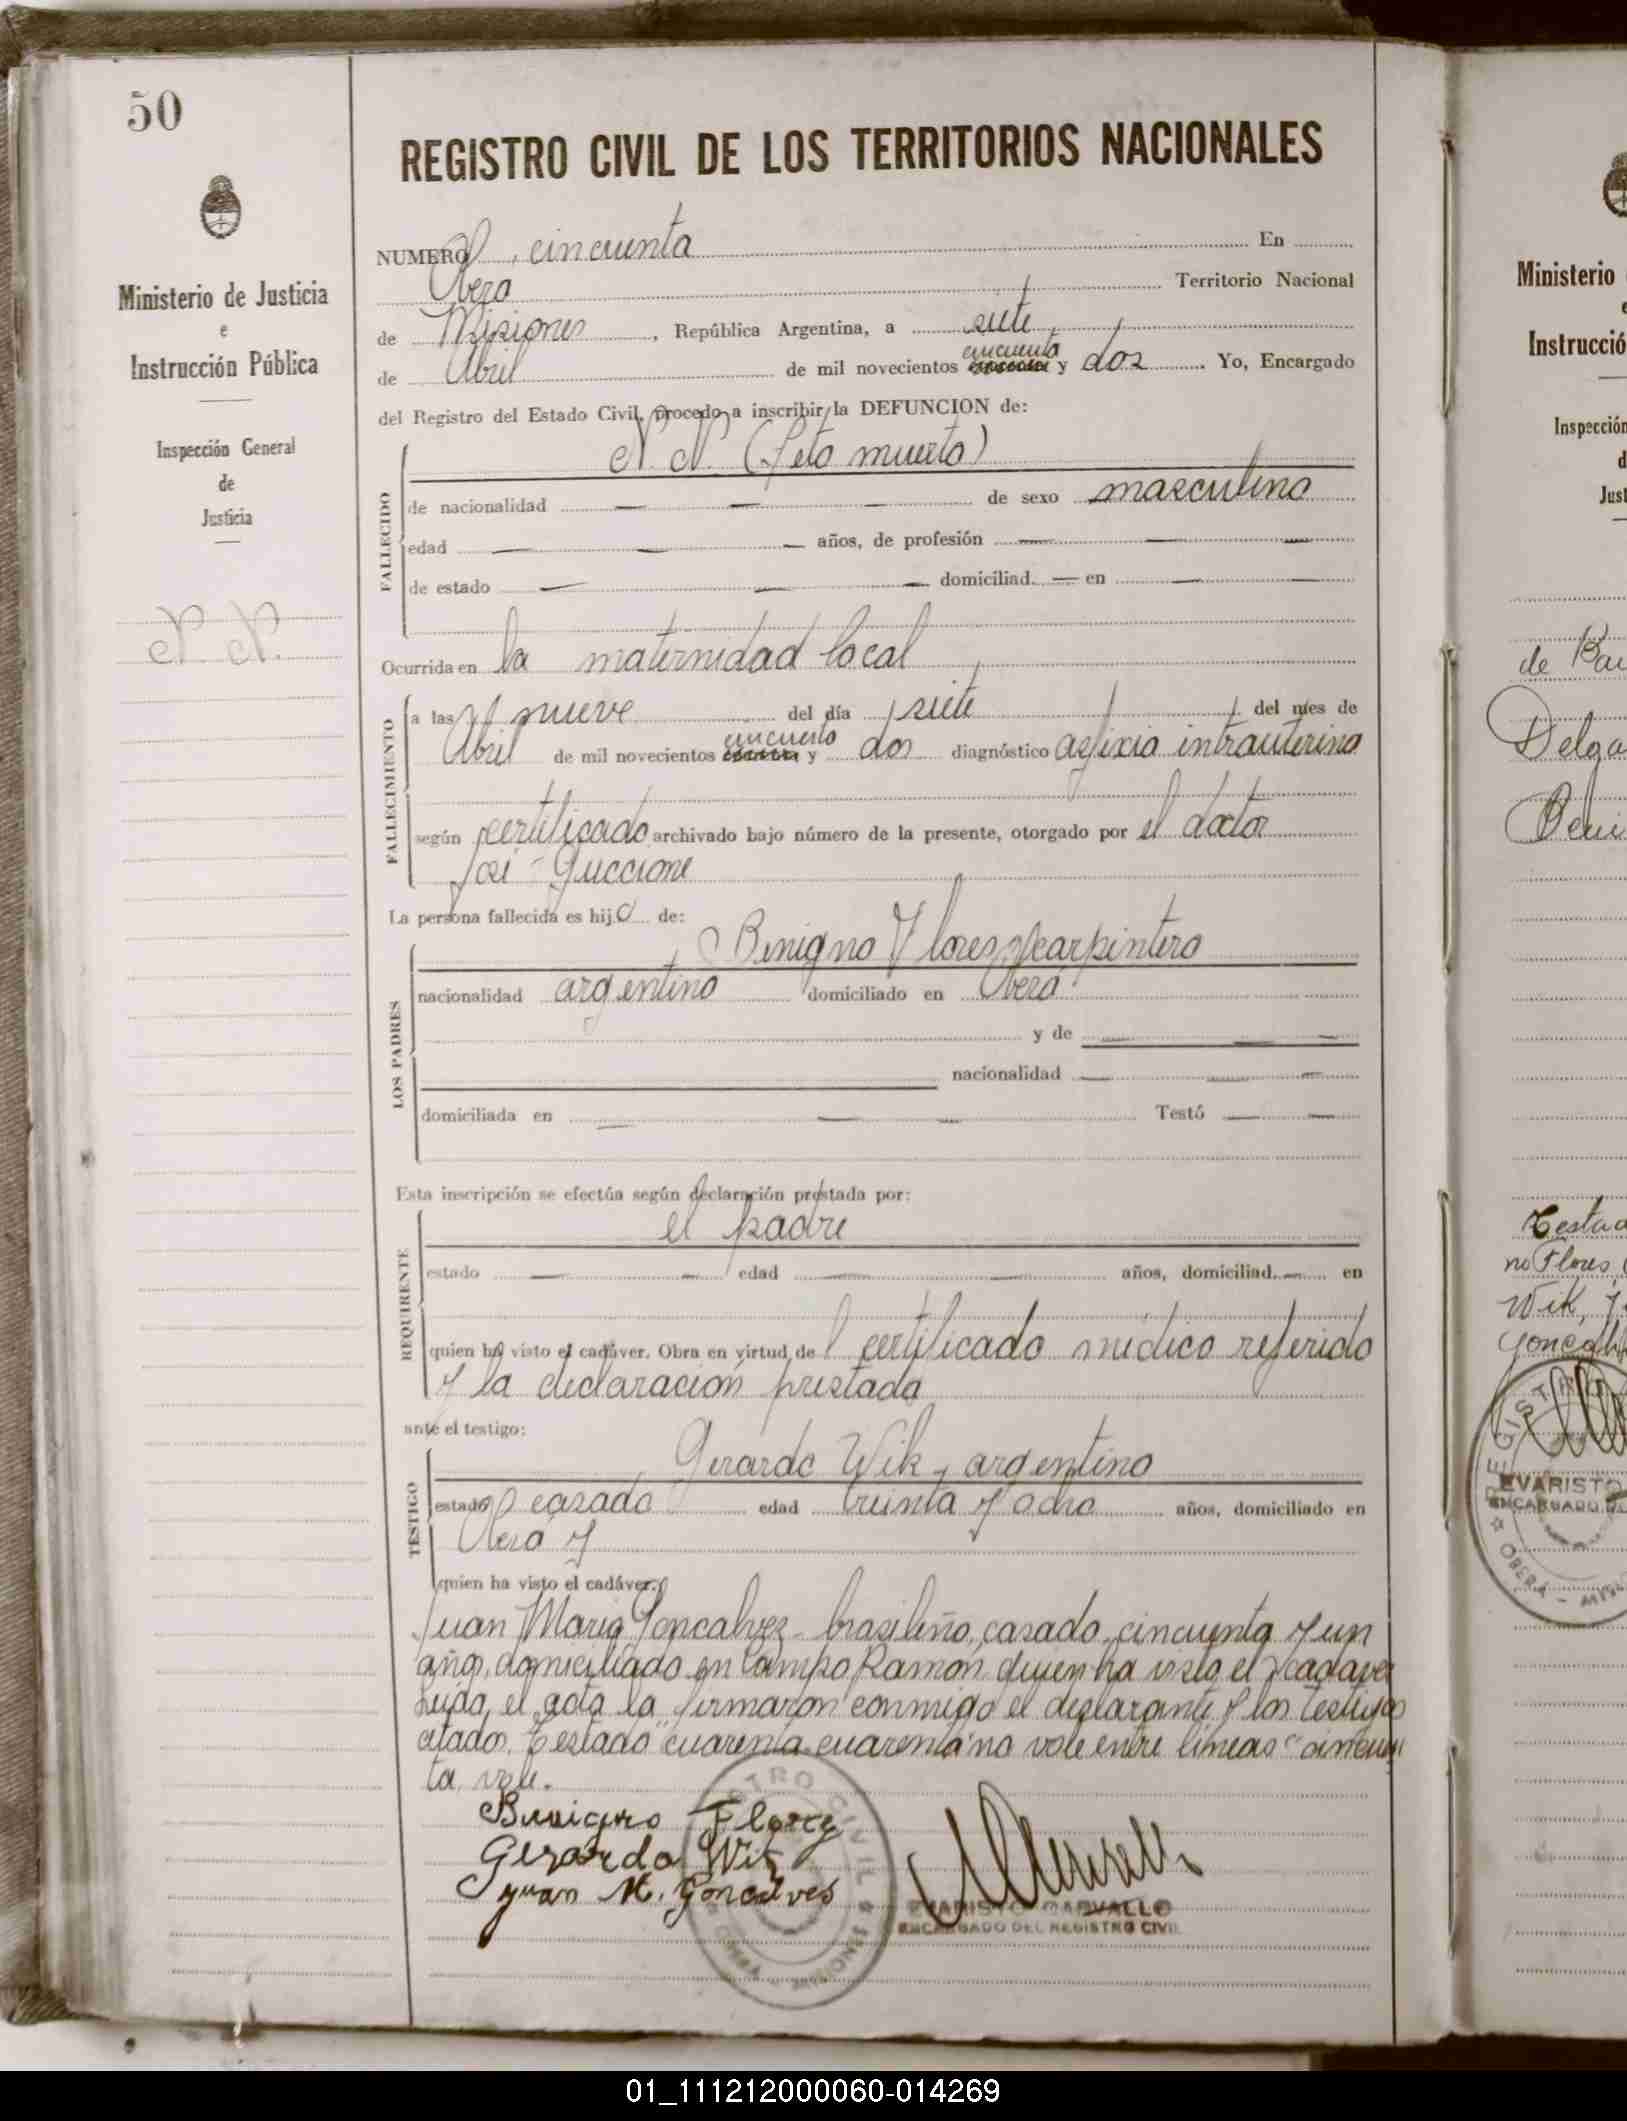 50
REGISTRO CIVIL DE LOS TERRITORIOS NACIONALES
Ministerio de Justicia
e
Instrucción Pública
Inspección General
de
Justicia
N. N.
NUMERO cincuenta En
Oberá Territorio Nacional
de Misiones, República Argentina, a siete
cincuenta
de Abril de mil novecientos y dos. Yo, Encargado
del Registro del Estado Civil, procedo a inscribir la DEFUNCION de:
FALLECIDO
N. N. (feto muerto)
de nacionalidad — — — de sexo masculino
edad — — — años, de profesión — — —
de estado — — — domiciliad. — en — —
Ocurrida en la maternidad local
FALLECIMIENTO
a las nueve del día siete del mes de
cincuenta
Abril de mil novecientos y dos diagnóstico asfixia intrauterina
según certificado archivado bajo número de la presente, otorgado por el doctor
José Guccione
La persona fallecida es hijo de:
LOS PADRES
Benigno Flores, carpintero
nacionalidad argentino domiciliado en Oberá
y de — — —
nacionalidad — — —
domiciliada en — — — Testó — —
Esta inscripción se efectúa según declaración prestada por:
REQUIRENTE
el padre
estado — — edad — — años, domiciliad. — en
quien ha visto el cadáver. Obra en virtud del certificado médico referido
y la declaración prestada
ante el testigo:
TESTIGO
Gerardo Wik, argentino
estado casado edad treinta y ocho años, domiciliado en
Oberá y
quien ha visto el cadáver.
Juan María Goncalvez - brasileño, casado, cincuenta y un
años, domiciliado en Campo Ramón quien ha visto el cadaver
Leída el acta la firmaron conmigo el declarante y los testigos
citados. Testado "cuarenta cuarenta" no vale entre líneas "cincuen
ta vale.
Benigno Flores
Gerardo Wik
Juan M. Goncalves
REGISTRO CIVIL
OBERA - MISIONES
EVARISTO CARVALLO
ENCARGADO DEL REGISTRO CIVIL
Ministerio
Instrucció
Inspección
d
Just
de Bau
Delga
Beni
Testad
no Flores,
Wik, J
Goncalv
REGISTR
EVARISTO
ENCARGADO DE
OBERA - MISIO
01_111212000060-014269